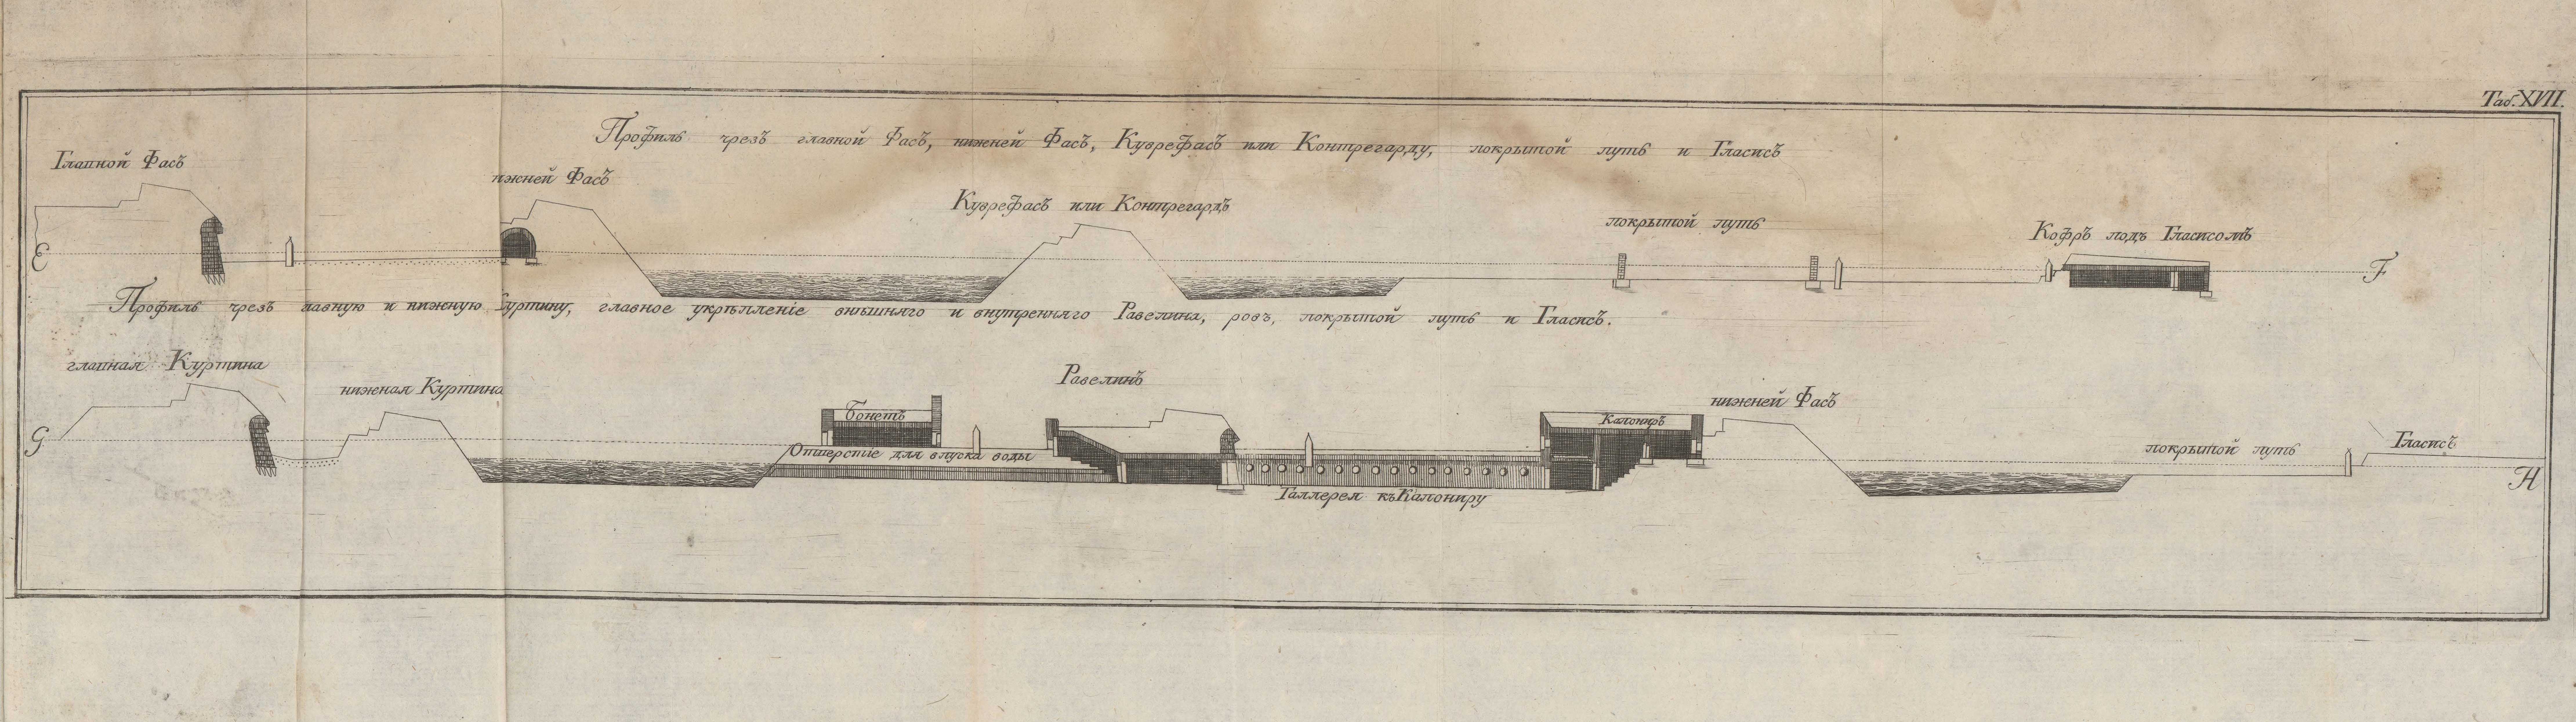 Таб. XVII.
Профиль чрезъ главной Фасъ, нижней Фасъ, Куврефасъ или Контрегарду, покрытой путь и Гласисъ
Главной Фасъ
нижней Фасъ
Куврефасъ или Контрегардъ
покрытой путь
Кофръ подъ Гласисомъ
E
F
Профиль чрезъ главную и нижную Куртину, главное укрѣпленіе внѣшняго и внутренняго Равелина, ровъ, покрытой путь и Гласисъ.
главная Куртина
нижная Куртина
Равелинъ
нижней Фасъ
Бонетъ
Капониръ
G
Отверстіе для впуска воды
покрытой путь
Гласисъ
H
Галлерея къ Капониру